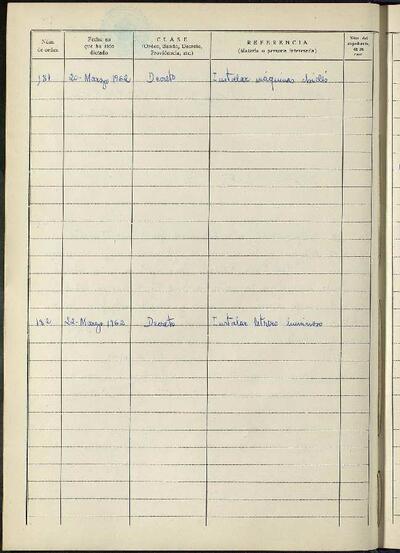 Núm. de orden
Fecha en que ha sido dictado
CLASE
(Orden, Bando, Decreto, Providencia, etc.)
REFERENCIA
(Materia o persona interesada)
Núm. del expediente, en su caso
181 20-Marzo 1962 Decreto Instalar máquinas
182 22-Marzo 1962 Decreto Instalar letrero luminoso